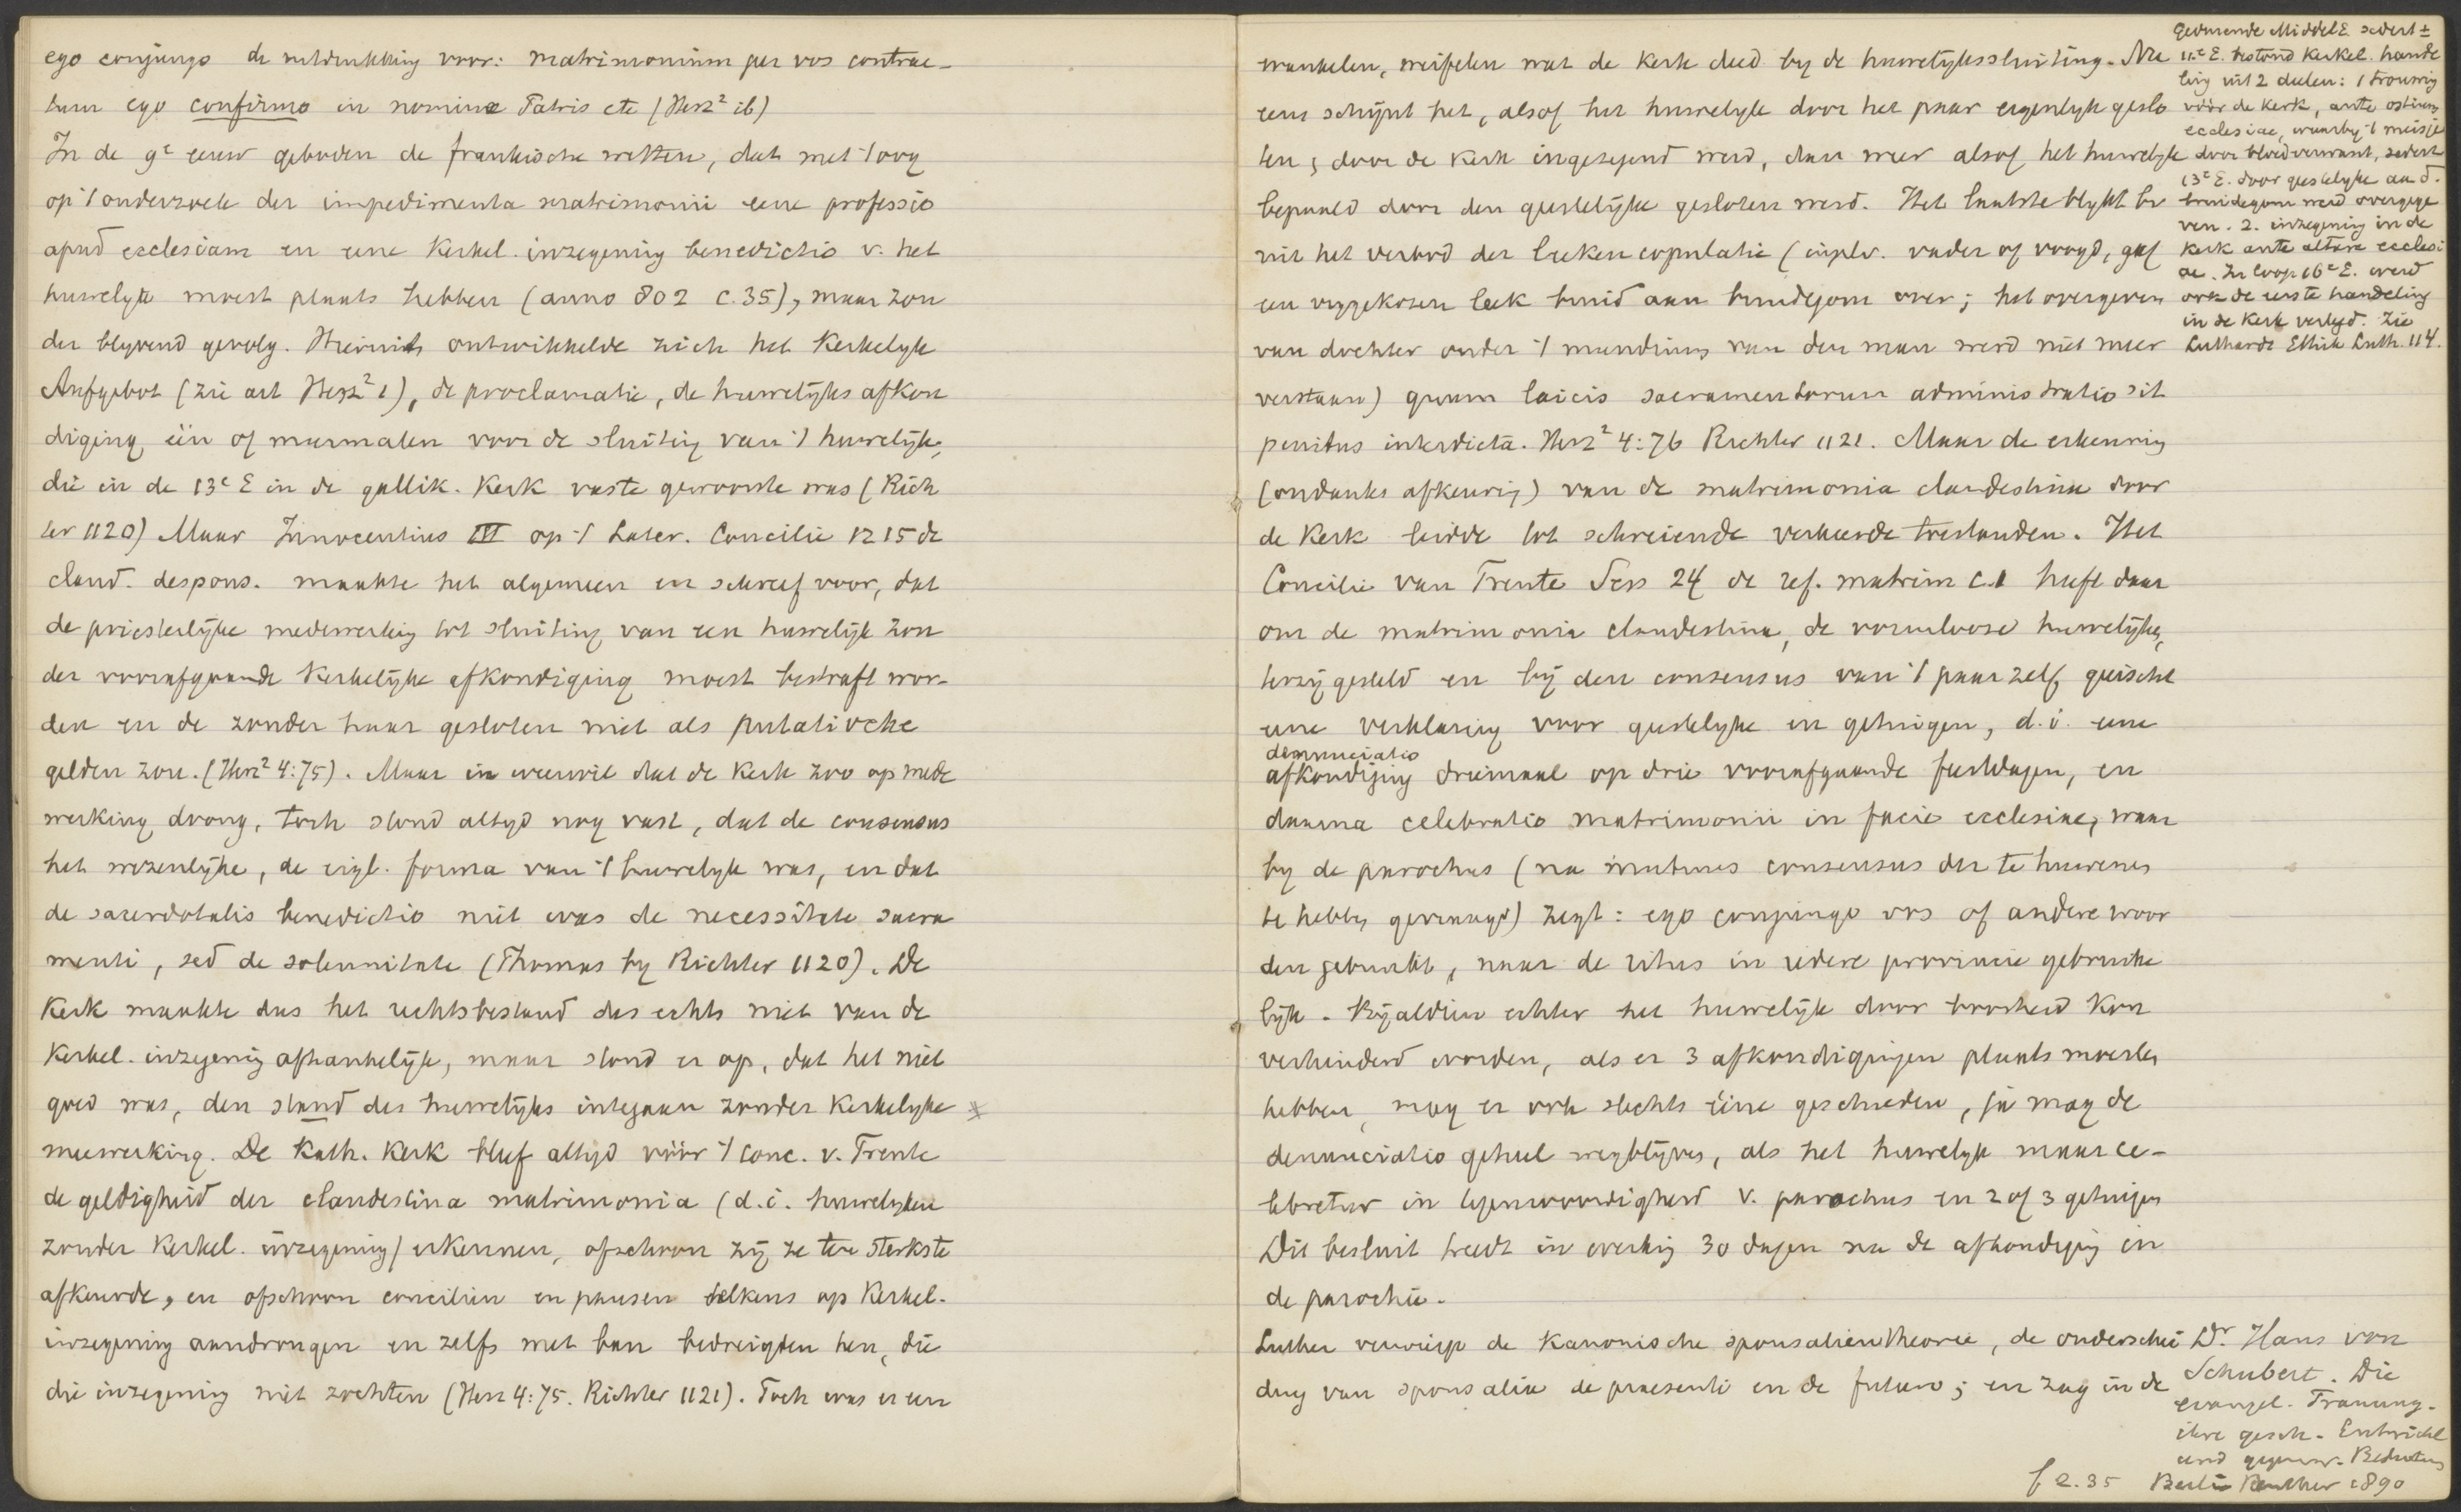 ego conjungo de uitdrukking voor: matrimonium per vos contrac-
tum ego confirmo in nomine Patris etc (Herz² ib)
In de 9e eeuw geboden de frankische wetten, dat met 't oog
op 't onderzoek der impedimenta matrimonii eene professio
apud ecclesiam en eene Kerkel. inzegening benedictio v. het
huwelijk moest plaats hebben (anno 802 c.35), maar zon
der blijvend gevolg. Hieruit ontwikkelde zich het Kerkelijk
Aufgebot (zie art Herz² 1), de proclamatie, de huwelijks afkon
diging één of meermalen voor de sluiting van 't huwelijk,
die in de 13e E in de gallik. Kerk vaste gewoonte was (Rich
ter 1120) Maar Innocentius III op 't Later. Concilie 1215 de
cland. despons. maakte het algemeen en schreef voor, dat
de priesterlijke medewerking tot sluiting van een huwelijk zon
der voorafgaande Kerkelijke afkondiging moest bestraft wor-
den en de zonder haar gesloten niet als putatieve
gelden zou. (Herz² 4:75). Maar in weerwil dat de Kerk zoo op mede
werking drong, toch stond altijd nog vast, dat de consensus
het wezenlijke, de eigl. forma van 't huwelijk was, en dat
de sacerdotalis benedictio niet was de necessitate sacra
menti, sed de solemnitate (Thomas by Richter 1120). De
Kerk maakte dus het rechtsbestand des echts niet van de
Kerkel. inzegening afhankelijk, maar stond er op, dat het niet
goed was, den stand des huwelijks integaan zonder Kerkelijke
meewerking. De Kath. Kerk bleef altijd vóór 't Conc. v. Trente
de geldigheid der clandestina matrimonia (d.i. huwelijken
zonder Kerkel. inzegening) erkennen, ofschoon zij ze ten sterkste
afkeurde, en ofschoon conciliën en pausen telkens op Kerkel.
inzegening aandrongen en zelfs met ban bedreigden hen, die
die inzegening niet zochten (Herz 4:75. Richter 1121). Toch was er een
wankelen, weifelen wat de Kerk deed by de huwelijkssluiting. Nu
eens schijnt het, alsof het huwelijk door het paar eigenlijk geslo
ten, door de Kerk ingezegend werd, dan weer alsof het huwelijk
bepaald door den geestelijke gesloten werd. Het laatste blijkt bv
uit het verbod der leekencopulatie (inplv. vader of voogd, gaf
een uitgekozen leek bruid aan bruidegom over; het overgeven
van dochter onder 't mundium van den man werd niet meer
verstaan) quum laicis sacramentorum administratio sit
penitus interdicta. Herz² 4:76 Richter 1121. Maar de erkenning
(ondanks afkeuring) van de matrimonia clandestina door
de Kerk leidde tot schreiende verkeerde toestanden. Het
Concilie van Trente Sess 24 de ref. matrim c.1 heeft daar
om de matrimonia clandestina, de vormlooze huwelijken,
terzijgesteld en bij den consensus van 't paar zelf geëischt
eene verklaring voor geestelijke en getuigen, d.i. eene
denunciatio
afkondiging driemaal op drie voorafgaande feestdagen, en
daarna celebratio matrimonii in facie ecclesiae, waar
by de parochus (na mutuus consensus der te huwenen
te hebben gevraagd) zegt: ego conjungo vos of andere woor
den gebruikt, naar de ritus in iedere provincie gebruike
lijk. Byaldien echter het huwelijk door boosheid kon
verhinderd worden, als er 3 afkondigingen plaats moesten
hebben, mag er ook slechts ééne geschieden, ja mag de
denunciatio geheel wegblijven, als het huwelijk maar ce-
lebretur in tegenwoordigheid v. parochus en 2 of 3 getuigen
Dit besluit treedt in werking 30 dagen na de afkondiging in
de parochie.
Luther verwierp de Kanonische sponsalientheorie, de onderschei
ding van sponsalia de praesenti en de futuro; en zag in de
Gedurende Middel E sedert ±
11e E. bestond Kerkel. hande
ling uit 2 deelen: 1 trouwing
vóór de Kerk, ante ostium
ecclesiae, waarbij 't meisje
door bloedverwant, sedert
13e E. door geestelijke aan d.
bruidegom werd overgege
ven. 2. inzegening in de
Kerk ante altare ecclesi
ae. In loop 16e E. werd
ook de eerste handeling
in de Kerk verlegd. Zie
Luthardt Ethik Luth. 114.
Dr Hans von
Schubert. Die
evangel. Trauung.
ihre gesch. Entwickl
und gegenw. Bedeutung
f 2.35 Berlin Reuther 1890